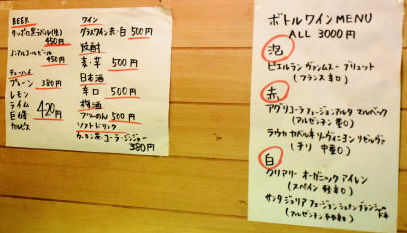 BEER
サッポロ黒ラベル(生)
450円
ノンアルコールビール
450円
チューハイ
プレーン 380円
レモン
ライム
巨峰
カルピス
420円
ワイン
グラスワイン 赤・白 500円
焼酎
麦・芋 500円
日本酒
辛口 500円
梅酒
500円
ソフトドリンク
ウーロン茶・コーラ・ジンジャー
380円
ボトルワインMENU
ALL 3000円
泡
ピエルラン ヴァンムスー ブリュット
(フランス 辛口)
赤
アグリコーラ フュージョンアルタ マルベック
(アルゼンチン 重口)
ラウカ カベルネソーヴィニヨン リゼルヴァ
(チリ 中重口)
白
クリアリー オーガニック アイレン
(スペイン 軽辛口)
サンタジュリア